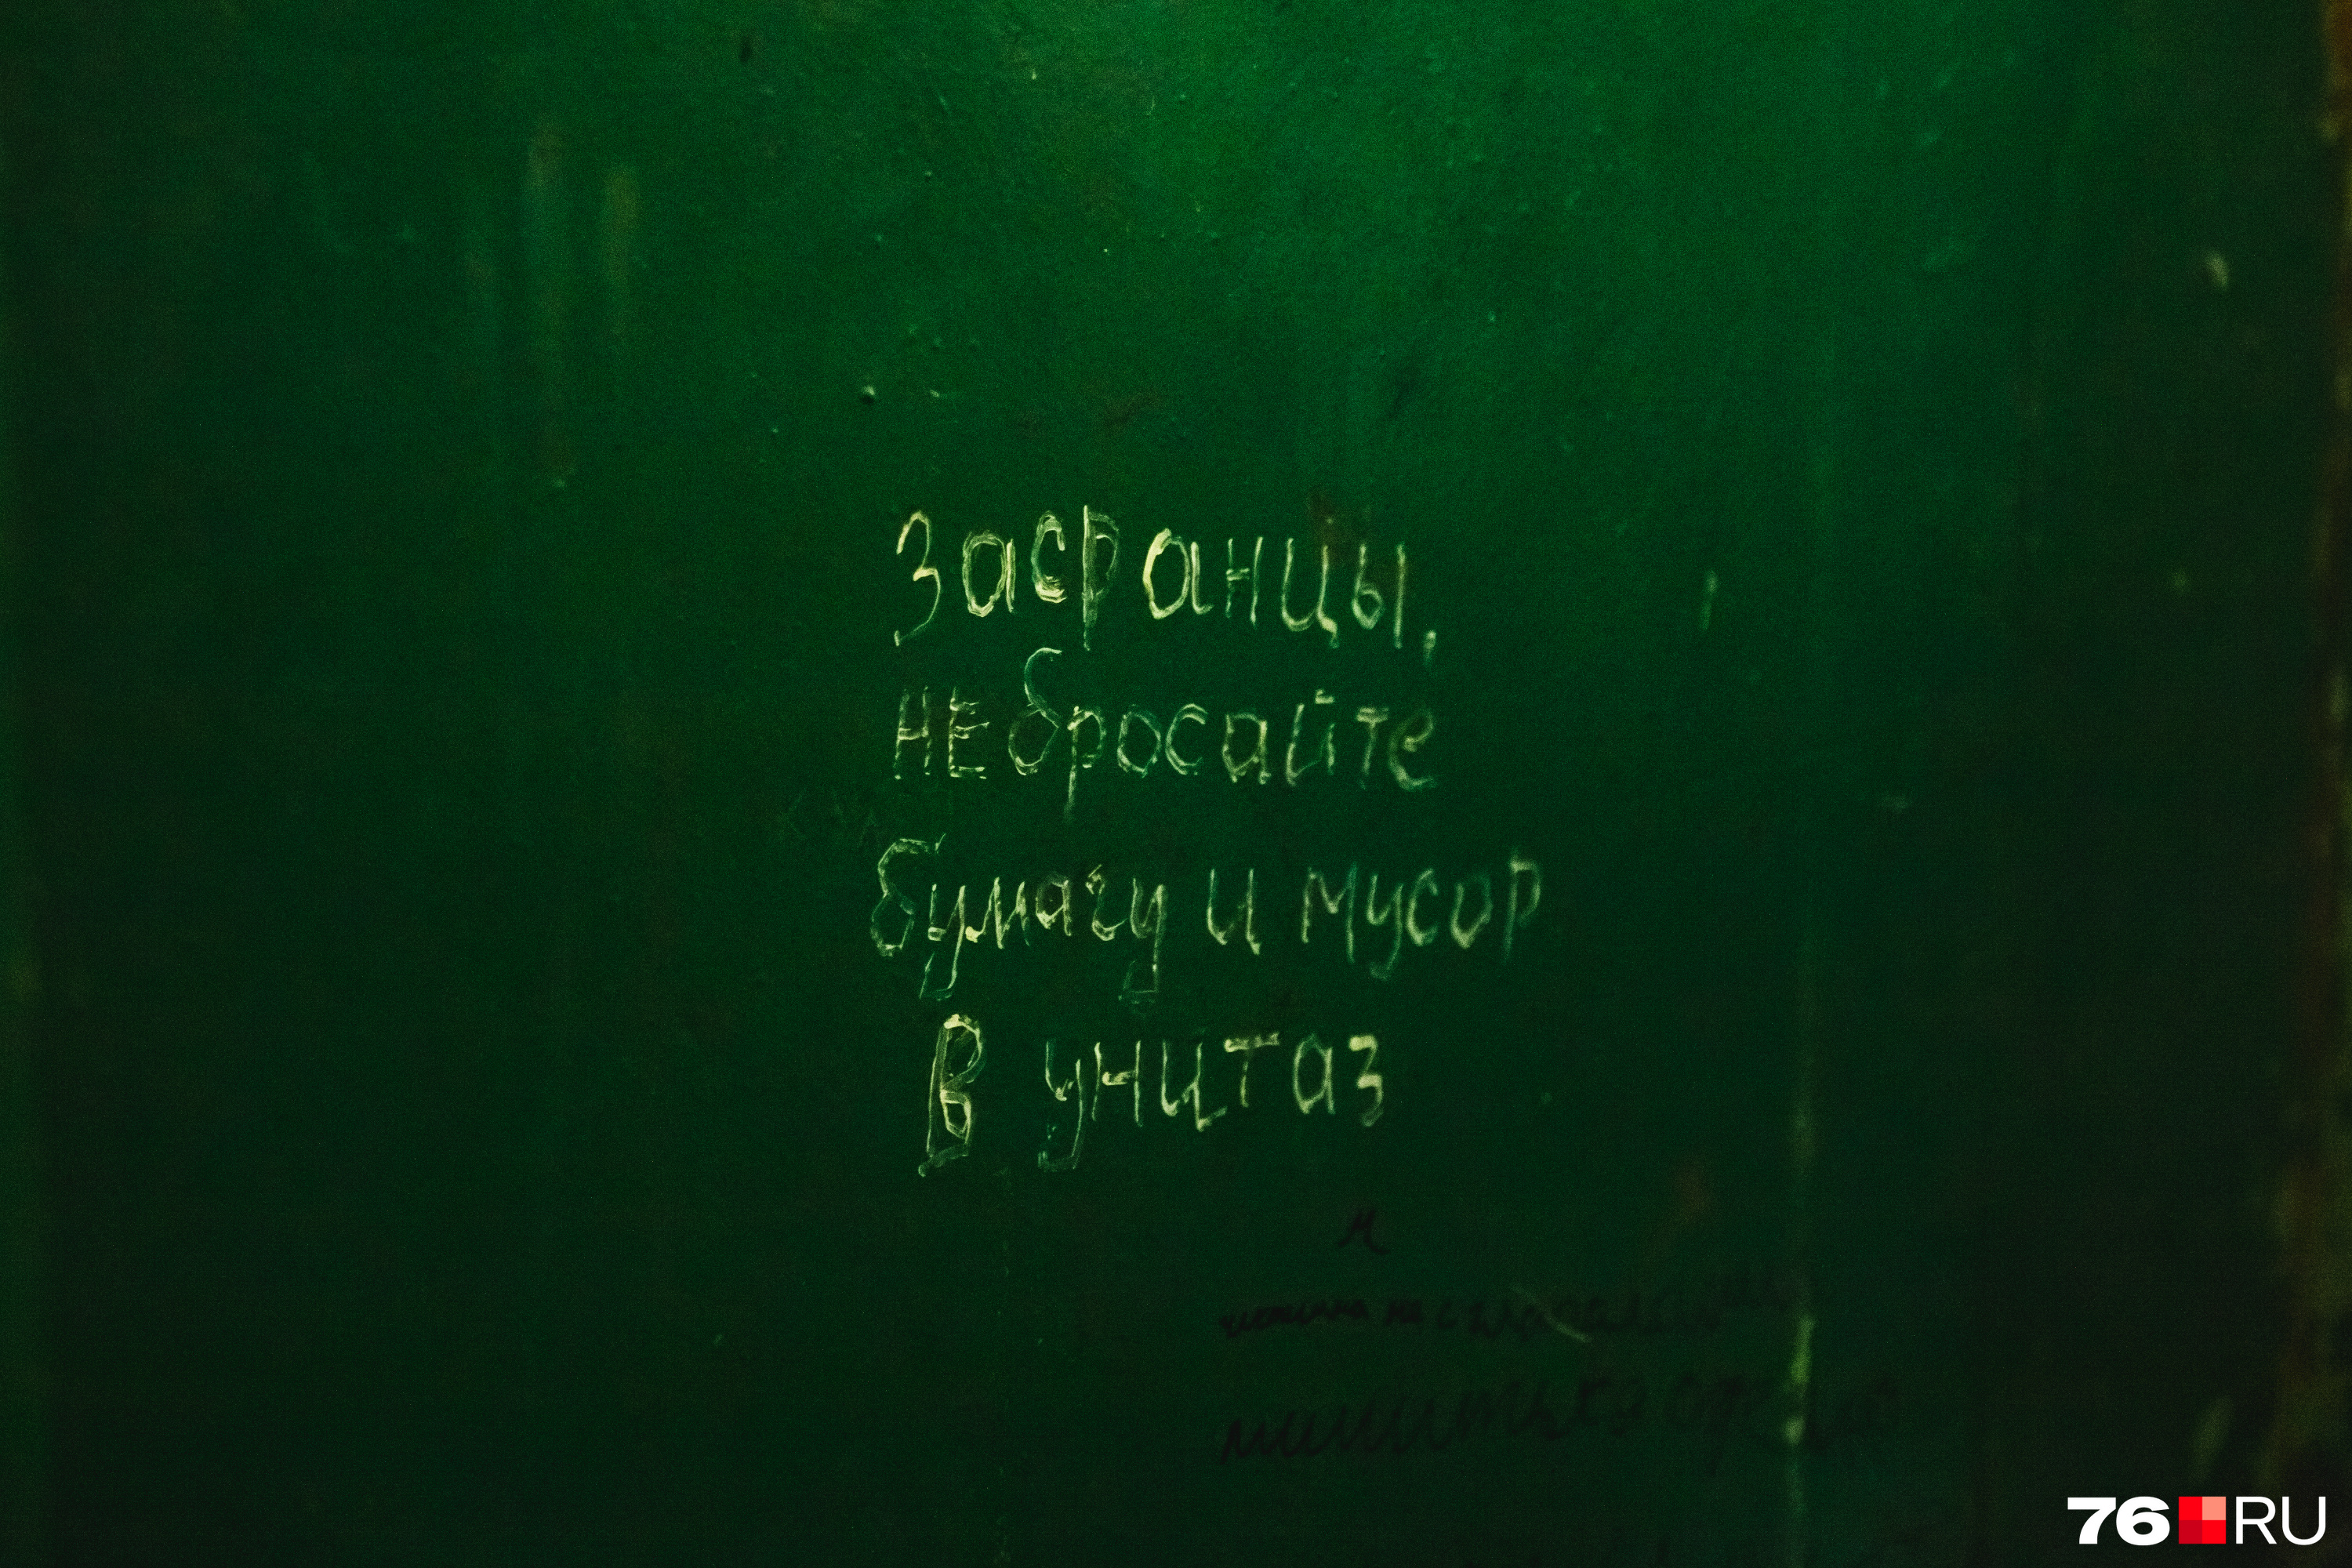 Засранцы,
НЕ бросайте
бумагу и мусор
В уництаз
76 RU